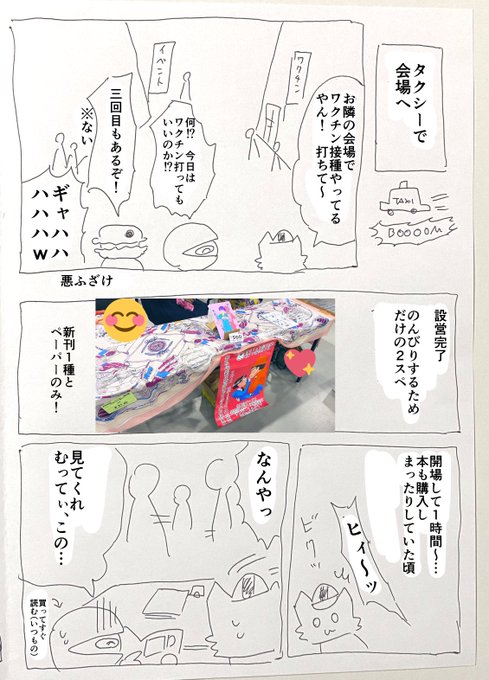 タクシーで
会場へ
TAXI
BOOOOM
ワクチン
イベント
お隣の会場で
ワクチン接種やってる
やん！
打ちて〜
何!? 今日は
ワクチン打っても
いいのか!?
三回目もあるぞ！
※ない
ギャハハ
ハハハw
悪ふざけ
設営完了
のんびりするため
だけの２スペ
新刊１種と
ペーパーのみ！
開場して１時間〜…
本も購入し
まったりしていた頃
ヒィ〜ッ
ビクッ
なんやっ
見てくれ
むってぃ、この…
買ってすぐ
読む(いつもの)